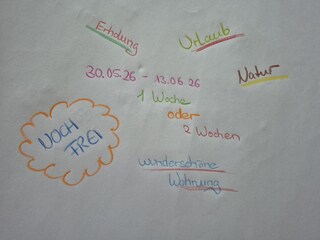 Erholung
Urlaub
Natur
30.05.26 - 13.06.26
1 Woche
oder
2 Wochen
NOCH
FREI
wunderschöne
Wohnung